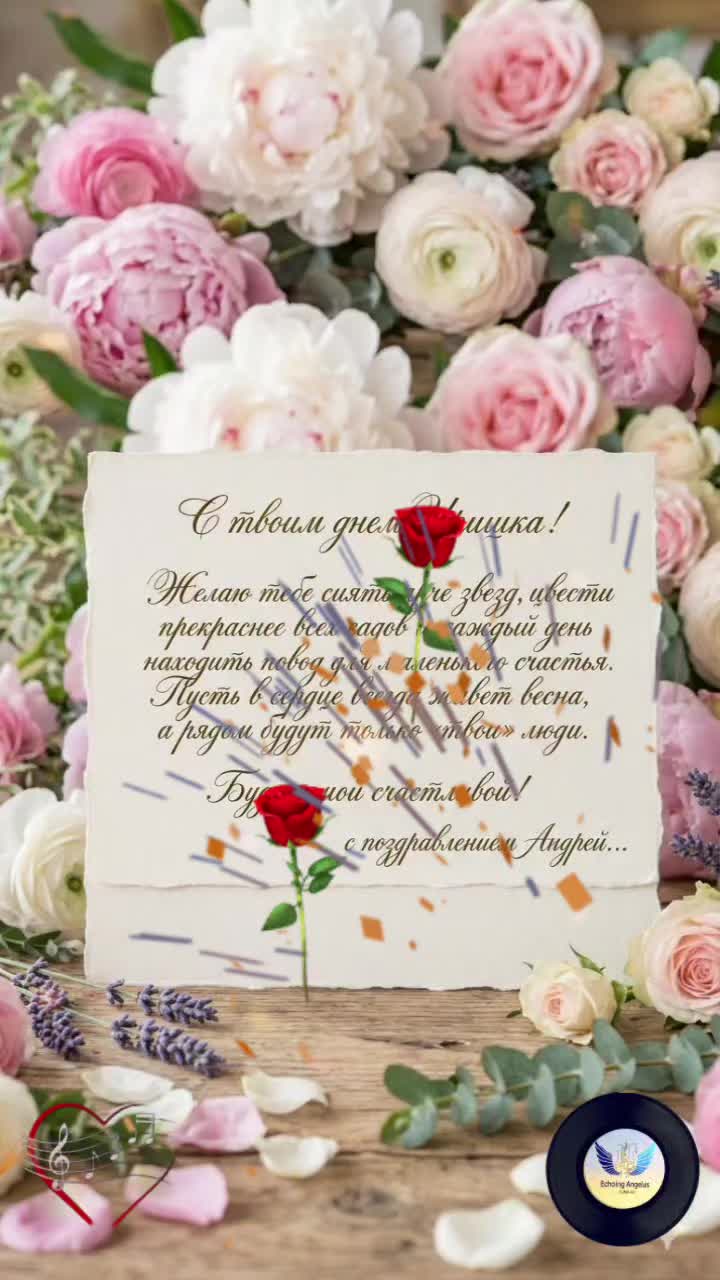 С твоим днем
Желаю тебе сиять ярче звезд, цвести
прекраснее всех садов и каждый день
находить повод для маленького счастья.
Пусть в сердце всегда живет весна,
а рядом будут только «твои» люди.
счастливой!
с поздравлением Андрей...
Echoing Angelus